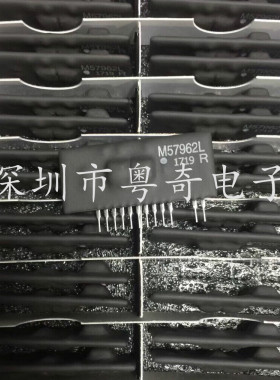 M57962L
1719 R
M57962L
1719 R
深圳市粤奇电子